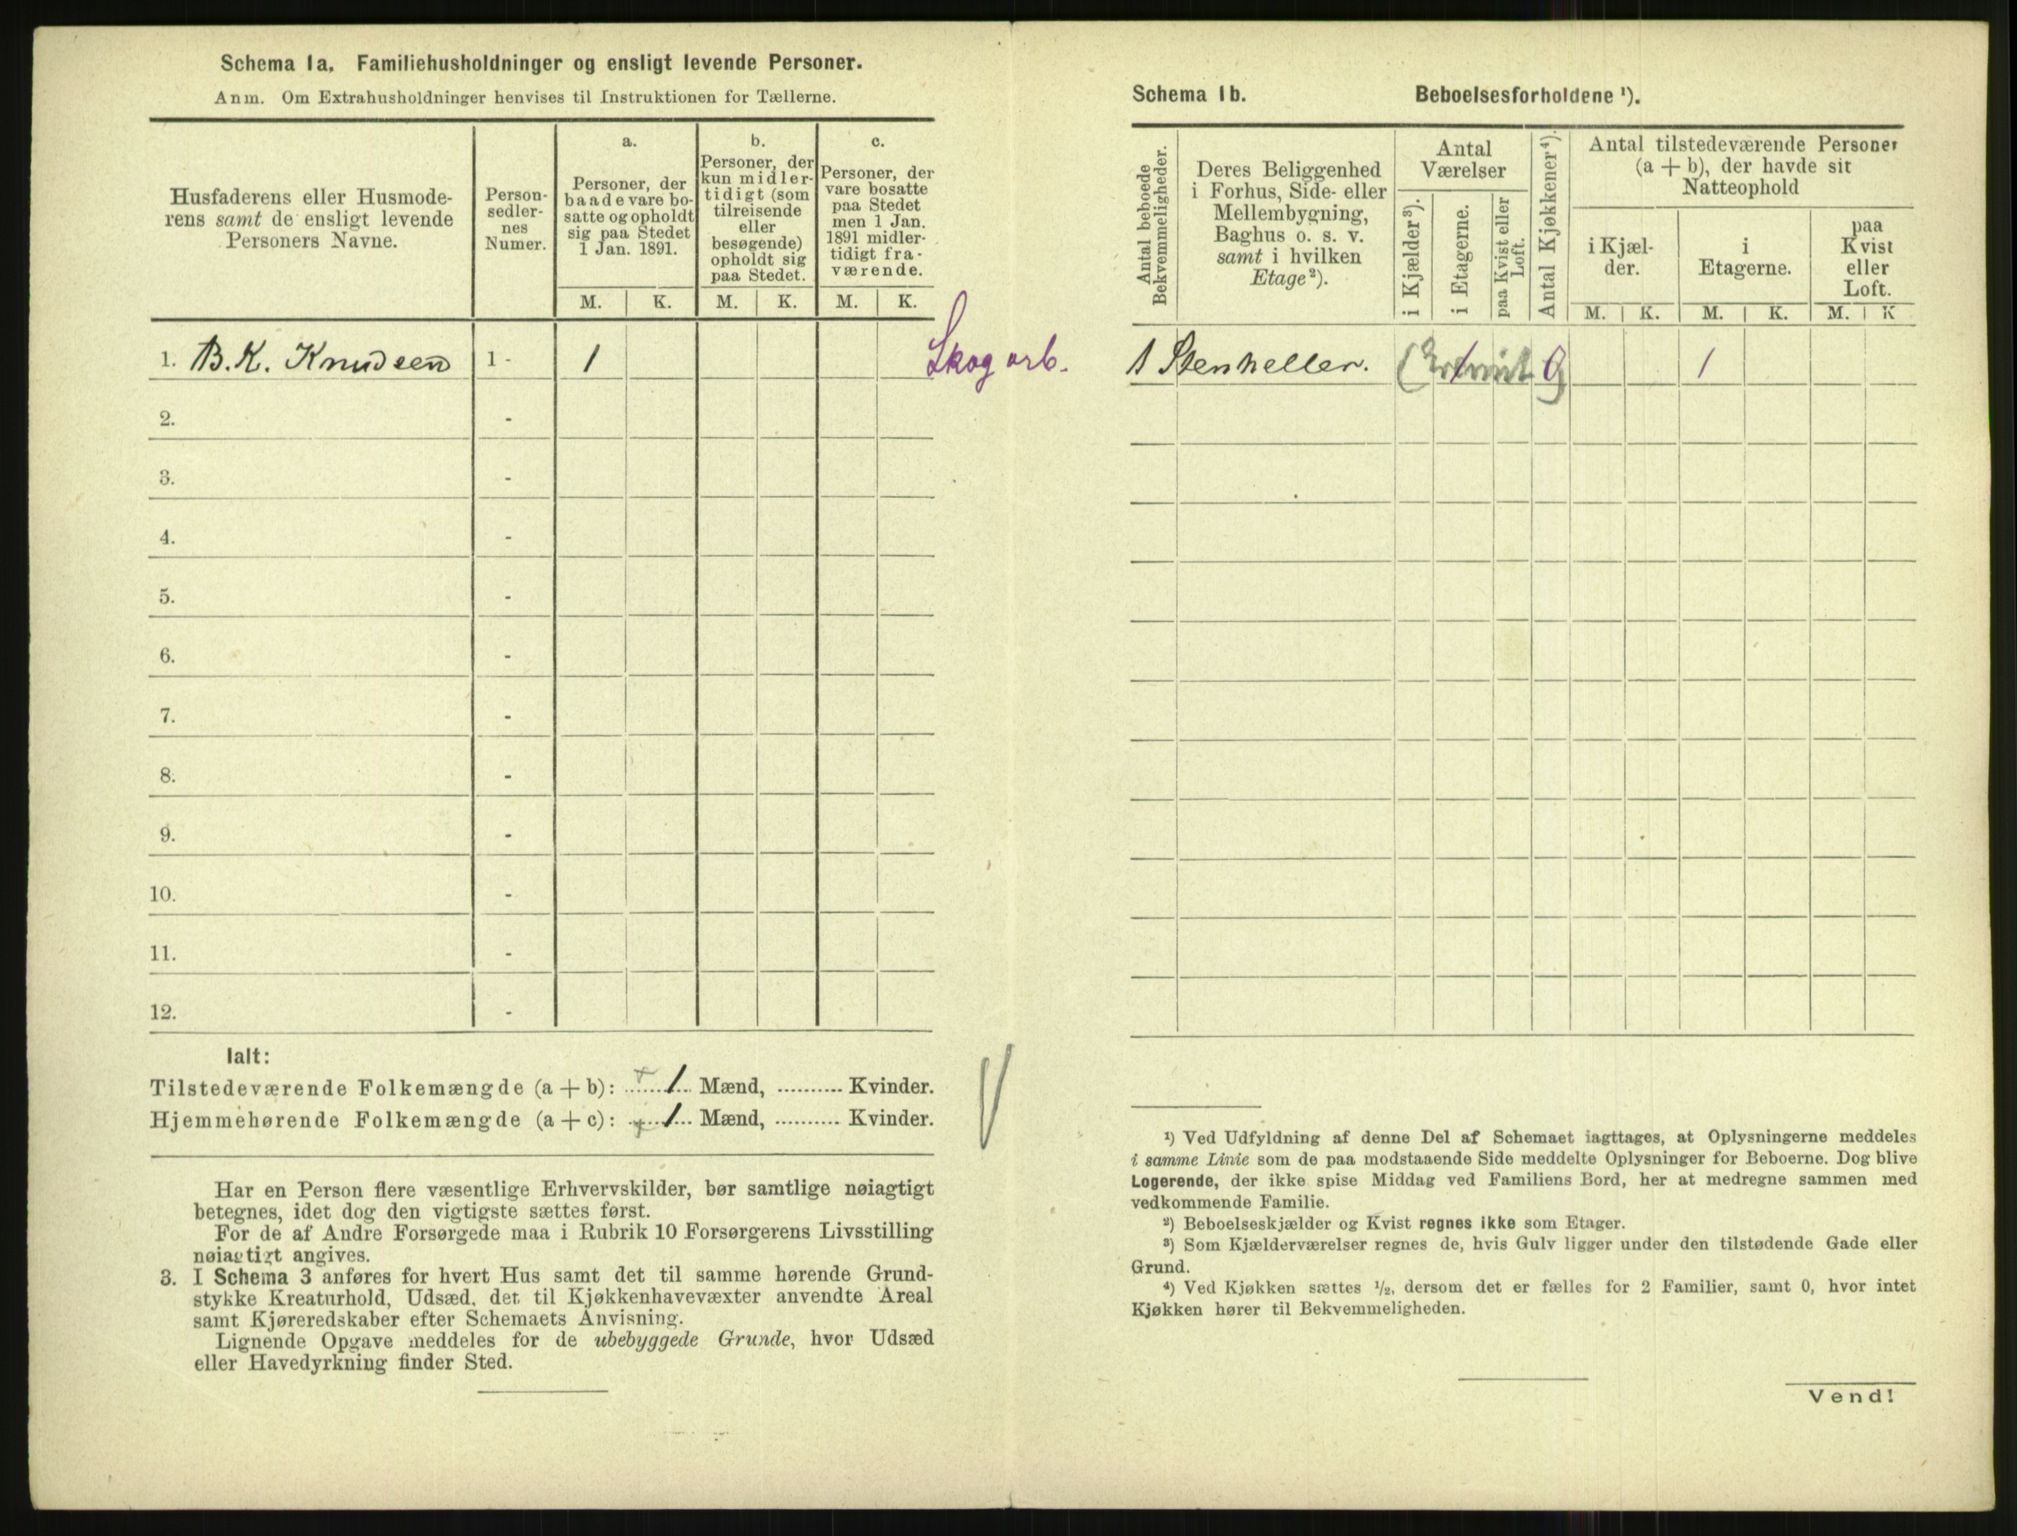 Schema 1a. Familiehusholdninger og ensligt levende Personer.
Anm. Om Extrahusholdninger henvises til Instruktionen for Tællerne.
Husfaderens eller Husmode-
rens samt de ensligt levende
Personers Navne.
Person-
sedler-
nes
Numer.
a.
Personer, der
baade vare bo-
satte og opholdt
sig paa Stedet
1 Jan. 1891.
b.
Personer, der
kun midler-
tidigt (som
tilreisende
eller
besøgende)
opholdt sig
paa Stedet.
c.
Personer, der
vare bosatte
paa Stedet
men 1 Jan.
1891 midler-
tidigt fra-
værende.
M. K. M. K. M. K.
1. B. K. Knudsen 1 - 1 Skog arb.
2. -
3. -
4. -
5. -
6. -
7. -
8. -
9. -
10. -
11. -
12. -
Ialt:
Tilstedeværende Folkemængde (a + b): 1 Mænd, .......... Kvinder.
Hjemmehørende Folkemængde (a + c): 1 Mænd, .......... Kvinder.
Har en Person flere væsentlige Erhvervskilder, bør samtlige nøiagtigt
betegnes, idet dog den vigtigste sættes først.
For de af Andre Forsørgede maa i Rubrik 10 Forsørgerens Livsstilling
nøiagtigt angives.
3. I Schema 3 anføres for hvert Hus samt det til samme hørende Grund-
stykke Kreaturhold, Udsæd, det til Kjøkkenhavevæxter anvendte Areal
samt Kjøreredskaber efter Schemaets Anvisning.
Lignende Opgave meddeles for de ubebyggede Grunde, hvor Udsæd
eller Havedyrkning finder Sted.
Schema 1b. Beboelsesforholdene ¹).
Antal beboede
Bekvemmeligheder.
Deres Beliggenhed
i Forhus, Side- eller
Mellembygning,
Baghus o. s. v.
samt i hvilken
Etage²).
Antal
Værelser
i Kjælder³).
i Etagerne.
paa Kvist eller
Loft.
Antal Kjøkkener⁴).
Antal tilstedeværende Personer
(a + b), der havde sit
Natteophold
i Kjæl-
der.
i
Etagerne.
paa
Kvist
eller
Loft.
M. K. M. K. M. K
1 Stenheller. 1 0 1
¹) Ved Udfyldning af denne Del af Schemaet iagttages, at Oplysningerne meddeles
i samme Linie som de paa modstaaende Side meddelte Oplysninger for Beboerne. Dog blive
Logerende, der ikke spise Middag ved Familiens Bord, her at medregne sammen med
vedkommende Familie.
²) Beboelseskjælder og Kvist regnes ikke som Etager.
³) Som Kjælderværelser regnes de, hvis Gulv ligger under den tilstødende Gade eller
Grund.
⁴) Ved Kjøkken sættes ½, dersom det er fælles for 2 Familier, samt 0, hvor intet
Kjøkken hører til Bekvemmeligheden.
Vend!